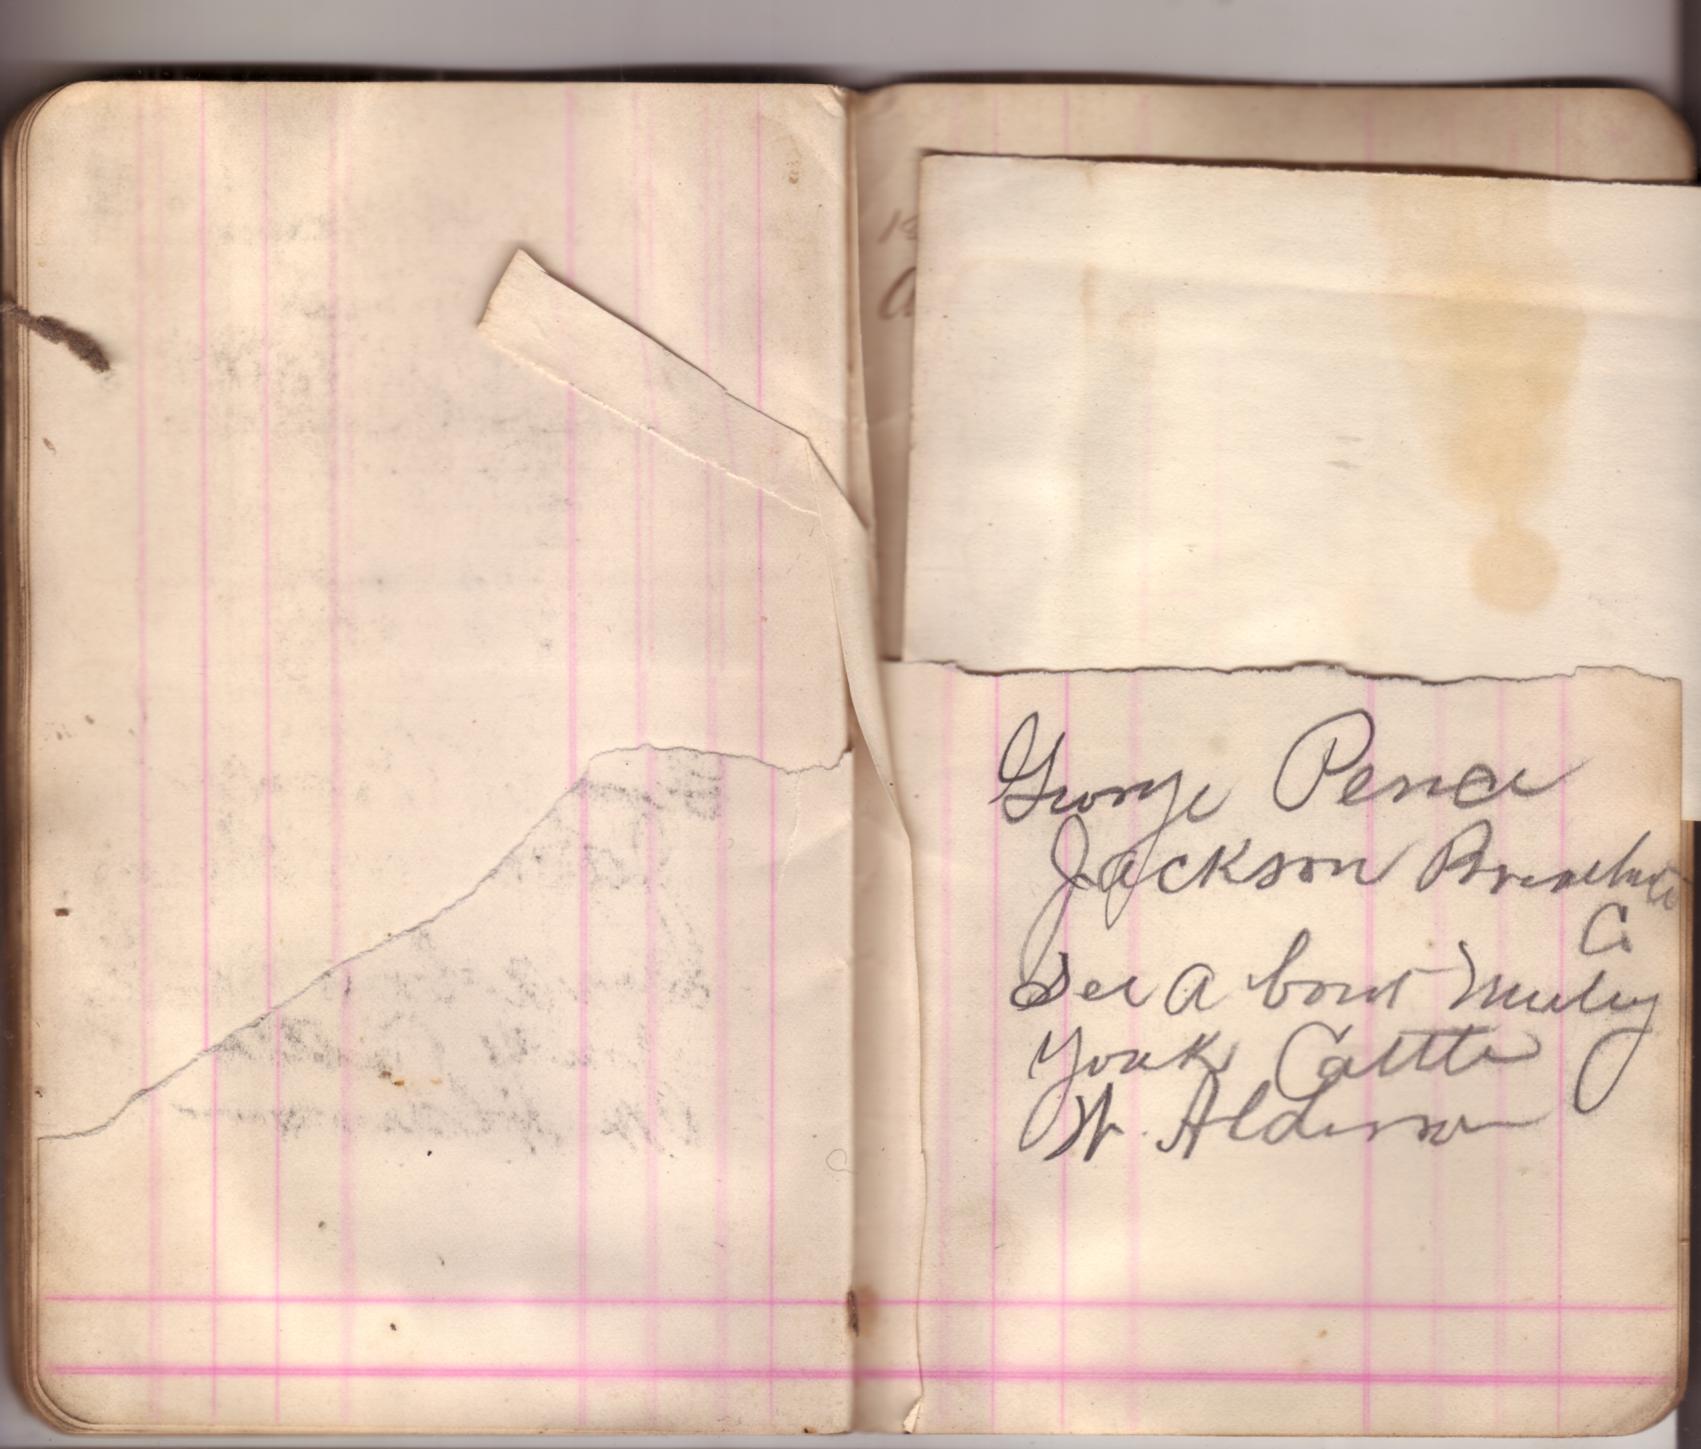 George Pence
Jackson Breathitt
Co
See A bout Muley
Yoak Cattle
W. Alderson